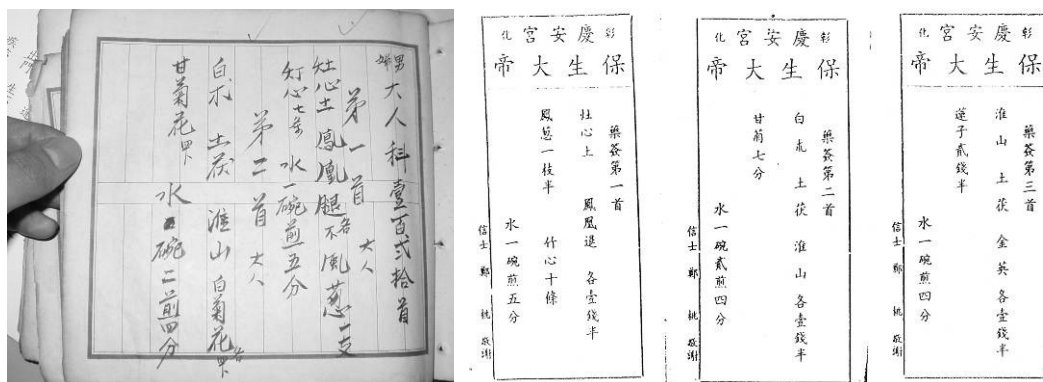 男婦大人科壹百弍拾首
第一首 大人
灶心土 鳳凰腿 各 風葱一支
灯心七条 水一碗煎五分
第二首 大人
白朮 土茯 淮山 白菊花 各
甘菊花
水 碗二煎四分
彰 慶安宮 化
保生大帝
藥簽第一首
灶心土 鳳凰退 各壹錢半
鳳葱一枝半 竹心十條
水一碗煎五分
信士 鄭 桃 敬謝
彰 慶安宮 化
保生大帝
藥簽第二首
白朮 土茯 淮山 各壹錢半
甘菊七分
水一碗貳煎四分
信士 鄭 桃 敬謝
彰 慶安宮 化
保生大帝
藥簽第三首
淮山 土茯 金英 各壹錢半
蓮子貳錢半
水一碗煎四分
信士 鄭 桃 敬謝